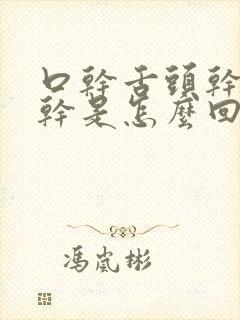 口幹舌頭幹
幹是怎麼回
馮嵐彬